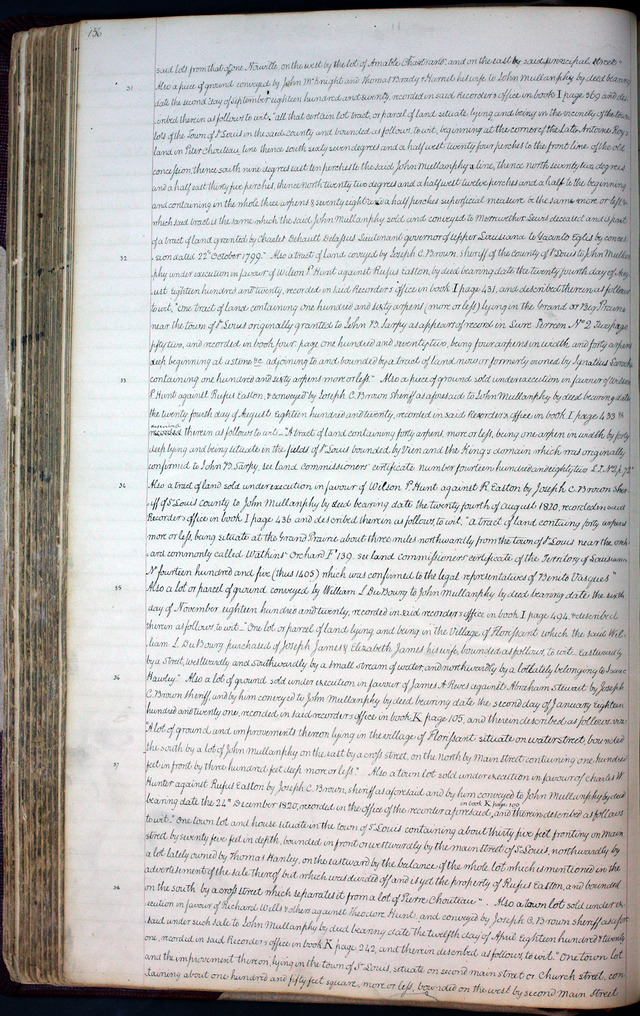 156
said lots from that of one Noville on the west by the lot of Amable Chartrand and on the east by said principal street.
31 Also a piece of ground conveyed by John McKnight and Thomas Brady & Harriet his wife to John Mullanphy by deed bearing
date the second day of september eighteen hundred and twenty, recorded in said Recorders office in book I page 369 and des
cribed therein as follows to wit, "all that certain lot tract, or parcel of land situate, lying and being in the vicinity of the town
lots of the Town of St Louis in the said county and bounded as follows to wit, beginning at the corner of the late Antoine Roy's
land in Peter Chouteau, line thence south sixty seven degrees and a half west twenty four perches to the front line of the old
concession, thence south nine degrees east ten perches to the said John Mullanphy's line, thence north seventy two degrees
and a half east thirty five perches, thence north twenty two degrees and a half west twelve perches and a half to the beginning
and containing in the whole three arpens & seventy eight and a half perches superficial measure be the same more or less
which said tract is the same which the said John Mullanphy sold and conveyed to Merriwether Lewis deceased and is part
of a tract of land granted by Charles Dehault Delassus Lieutenant governor of upper Louisiana to Yacinto Eglis by conces
32 sion dated 22d October 1799." Also a tract of land conveyed by Joseph C. Brown, sheriff of the county of St Louis to John Mullan
phy under execution in favour of Wilson P. Hunt against Rufus Easton, by deed bearing date the twenty fourth day of Aug
ust eighteen hundred and twenty, recorded in said Recorders office in book I page 431, and described therein as follows
to wit, "One tract of land containing one hundred and sixty arpens (more or less) lying in the Grand or Big Prairie
near the town of St Louis originally granted to John B. Sarpy as appears of record in Livre Terrein No 2 page
fifty two, and recorded in book four page one hundred and seventy two, being four arpens in width and forty arpens
deep beginning at a stone &c adjoining to and bounded by a tract of land now or formerly owned by Ignatius
33 containing one hundred and sixty arpens more or less." Also a piece of ground sold under execution in favour of Wilson
P. Hunt against Rufus Easton, & conveyed by Joseph C. Brown Sheriff as aforesaid to John Mullanphy by deed bearing date
the twenty fourth day of August Eighteen hundred and twenty, recorded in said Recorder's office in book I page 433 &
described
recorded therein as follows to wit. "A tract of land containing forty arpens, more or less, being one arpen in width by forty
deep lying and being situate in the fields of St Louis bounded by Vien and the King's domain which was originally
confirmed to John B. Sarpy, see land commissioners' certificate number fourteen hundred and eighty two
34 Also a tract of land sold under execution in favour of Wilson P. Hunt against R. Easton by Joseph C. Brown Sher
iff of St Louis county to John Mullanphy by deed bearing date the twenty fourth of august 1820, recorded in said
Recorders office in book I page 436 and described therein as follows, to wit, "a tract of land containg forty arpens
more or less, being situate at the Grand Prairie about three miles northwardly from the town of St Louis near the orch
ard commonly called Watkins' Orchard Fo 139. see land commissioners certificate of the Territory of Louisiana
No fourteen hundred and five (thus 1405) which was confirmed to the legal representatives of Benito Vasques"
35 Also a lot or parcel of ground conveyed by William L DuBourg to John Mullanphy by deed bearing date the sixth
day of November eighteen hundred and twenty, recorded in said recorders office in book I page 494, & described
therein as follows to wit. "One lot or parcel of land lying and being in the Village of Florissant which the said Wil
liam L DuBourg purchased of Joseph James & Elizabeth James his wife, bounded as follows, to wit. Eastwardly
by a street, westwardly and southwardly by a small stream of water, and northwardly by a lot lately belonging to Isaac
36 Hawley." Also a lot of ground sold under execution in favour of James A Reeds against Abraham Stewart by Joseph
C. Brown sheriff, and by him conveyed to John Mullanphy by deed bearing date the second day of January eighteen
hundred and twenty one, recorded in said recorders office in book K page 105, and therein described as follows viz
"A lot of ground and improvements thereon lying in the village of Florissant situate on water street, bounded
the south by a lot of John Mullanphy on the east by a cross street, on the north by Main street containing one hundred
37 feet in front by three hundred feet deep more or less." Also a town lot sold under execution in favour of Charles W.
Hunter against Rufus Easton by Joseph C. Brown, sheriff as aforesaid and by him conveyed to John Mullanphy by deed
in book K page 100
bearing date the 24th December 1820, recorded in the office of the recorder aforesaid, and therein described as follows
to wit. "One town lot and house situate in the town of St Louis containing about thirty five feet fronting on Main
street by seventy five feet in depth, bounded in front or westwardly by the main street of St Louis, northwardly by
a lot lately owned by Thomas Hanley, on the eastward by the balance of the whole lot which is mentioned in the
advertisement of the sale thereof but which was divided off and is yet the property of Rufus Easton, and bounded
38 on the south by a cross street which separates it from a lot of Pierre Chouteau". Also a town lot sold under ex
ecution in favour of Richard Wills & others against Theodore Hunt, and conveyed by Joseph C. Brown sheriff as afore
said under such sale to John Mullanphy by deed bearing date the twelfth day of April Eighteen hundred & twenty
one, recorded in said Recorders office in book K page 242, and therein described as follows, to wit. "One town lot
and the improvement thereon, lying in the town of St Louis, situate on second main street or Church street, con
taining about one hundred and fifty feet square, more or less, bounded on the west by second main street